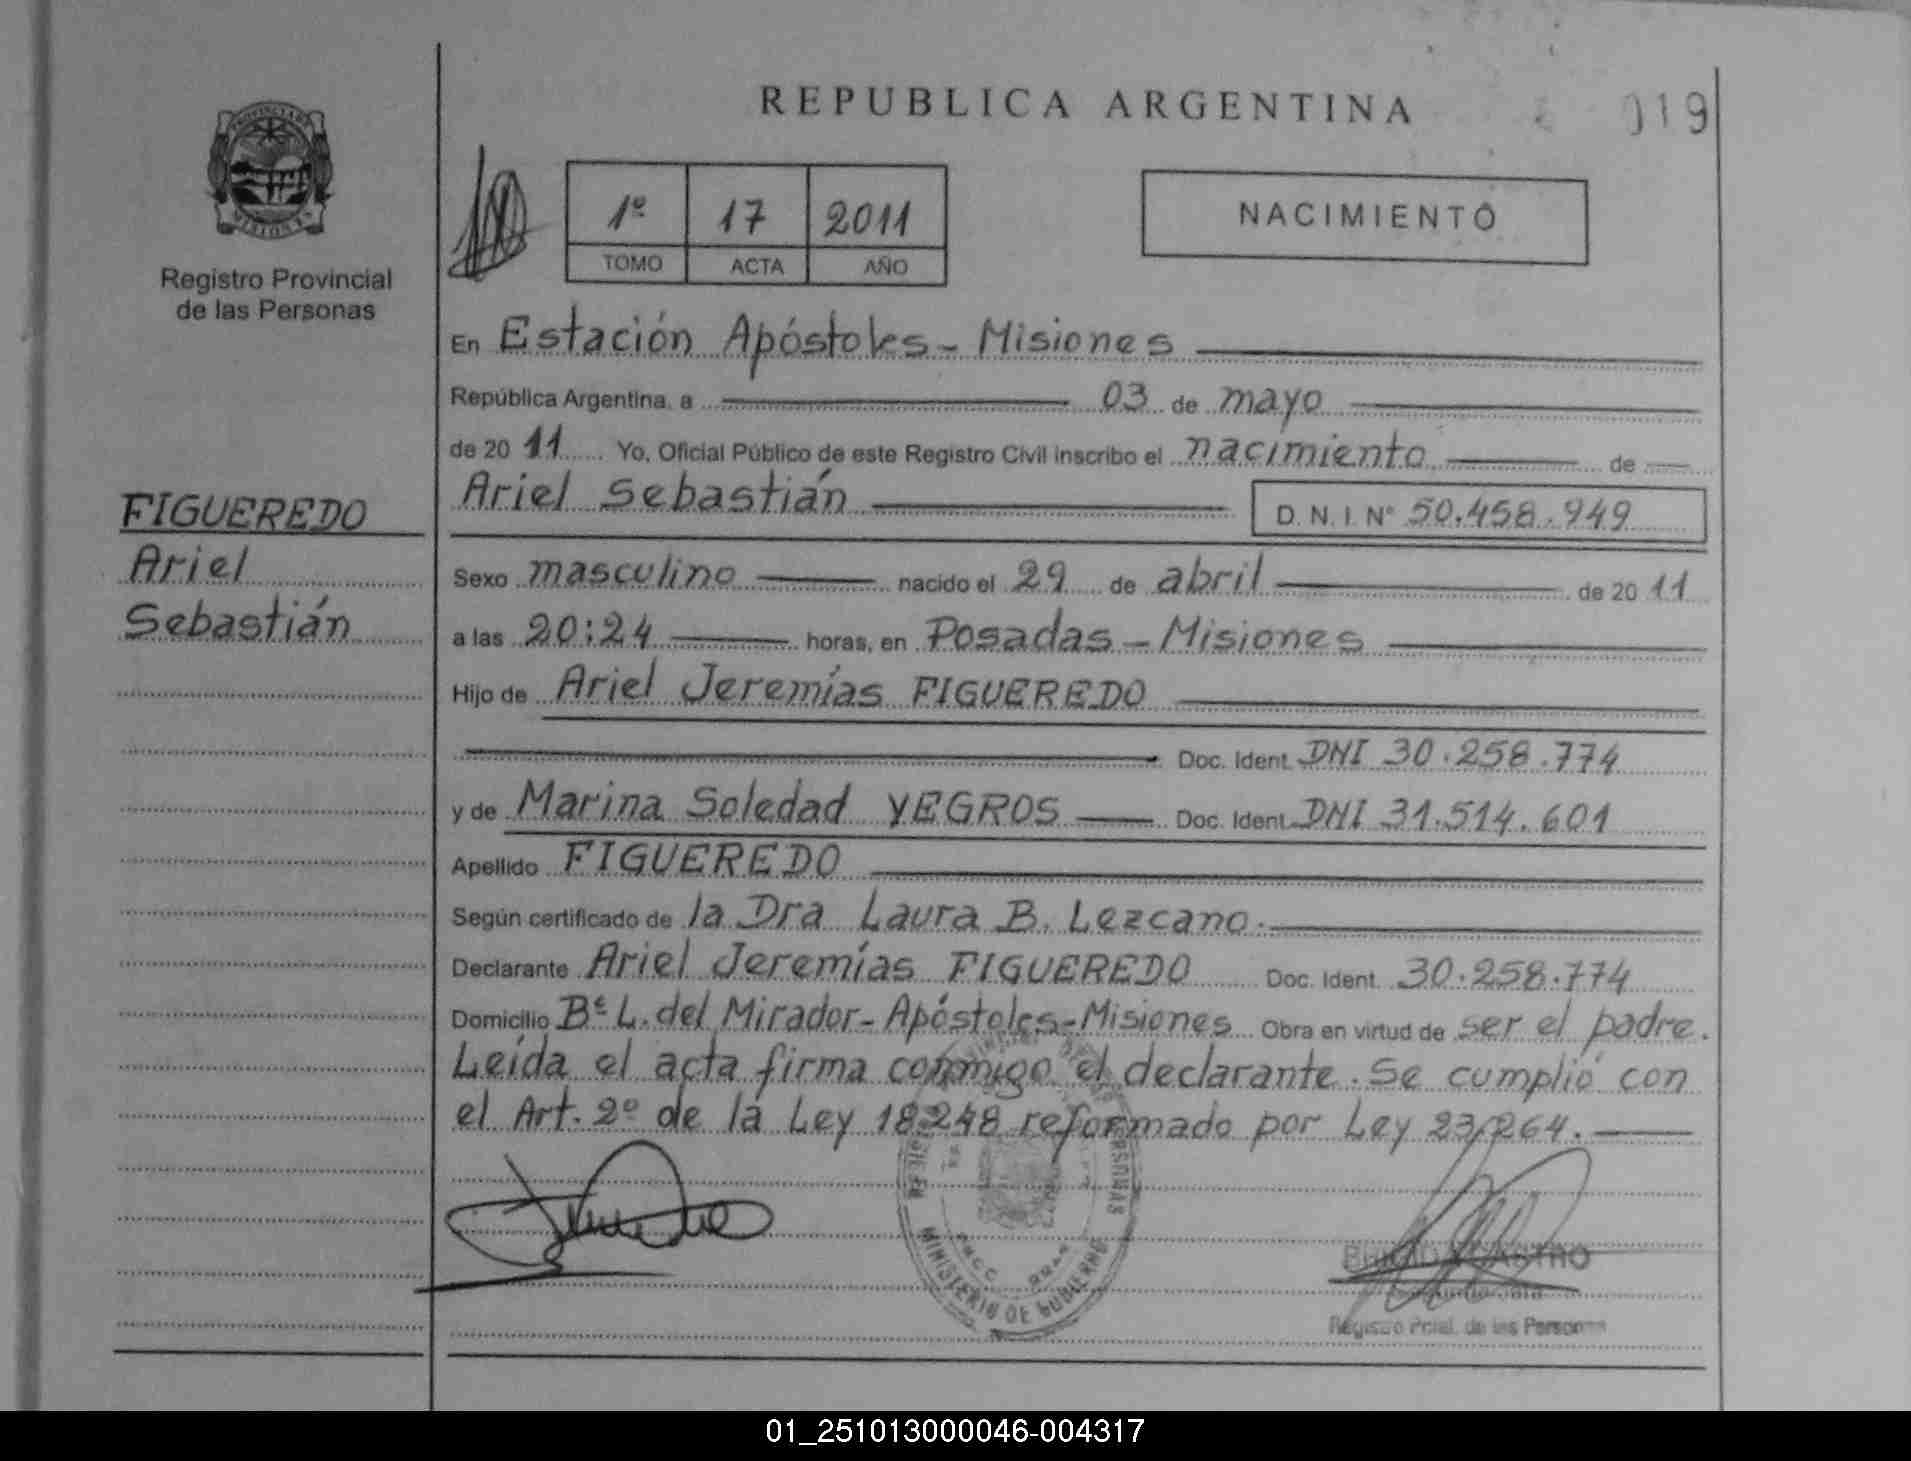 REPUBLICA ARGENTINA
019
PROVINCIA DE
MISIONES
Registro Provincial
de las Personas
1º 17 2011
TOMO ACTA AÑO
NACIMIENTO
En Estación Apóstoles - Misiones
República Argentina, a 03 de mayo
de 2011 Yo, Oficial Público de este Registro Civil inscribo el nacimiento de
Ariel Sebastián D.N.I. Nº 50.458.949
FIGUEREDO
Ariel
Sebastián
Sexo masculino nacido el 29 de abril de 2011
a las 20:24 horas, en Posadas - Misiones
Hijo de Ariel Jeremías FIGUEREDO
Doc. Ident. DNI 30.258.774
y de Marina Soledad YEGROS Doc. Ident. DNI 31.514.601
Apellido FIGUEREDO
Según certificado de la Dra Laura B. Lezcano.
Declarante Ariel Jeremías FIGUEREDO Doc. Ident. 30.258.774
Domicilio Bº L. del Mirador - Apóstoles - Misiones Obra en virtud de ser el padre.
Leída el acta firma conmigo el declarante. Se cumplió con
el Art. 2º de la Ley 18248 reformado por Ley 23.264.
MINISTERIO DE GOBIERNO
CASTRO
Registro Pcial. de las Personas
01_251013000046-004317